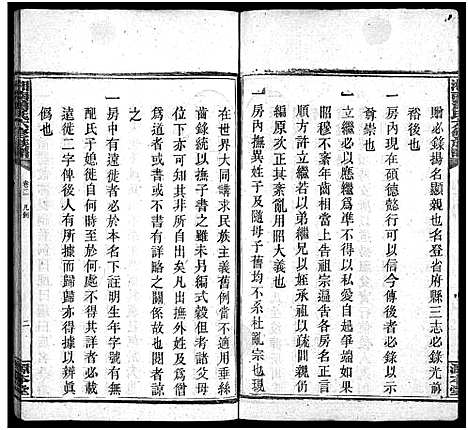 贈必錄揚名顯親也名登省府縣三志必錄光前
裕後也
一房內現存如有碩德懿行而信今傳後者必錄以示
尊崇也
一立繼必以應繼爲準不得以私愛自起爭端如果
順方許立繼若以弟繼兄以姪承祖以疏間親
昭穆不紊年齒相當上告祖宗遍告各房名正言
編原次其正其紊亂用昭大義也
一房內撫異姓子及隨母子舊均不系杜亂宗也現
卷二 凡例
二
在世界大同講求民族主義舊例當不適用垂絲
齒錄統以撫子書之雖未另編式穀但考諸父母
以下亦可知其所自出矣凡出撫外姓及爲僧
爲道者或書或不書有詳略之關係故也閱者諒
之
一房中有遠徙者必於本名下註明生年字號有無
配氏子媳徙自某年至於何處不得其詳者必載
遠徙二字俾後人有所據而歸歸亦得以辨眞
僞也